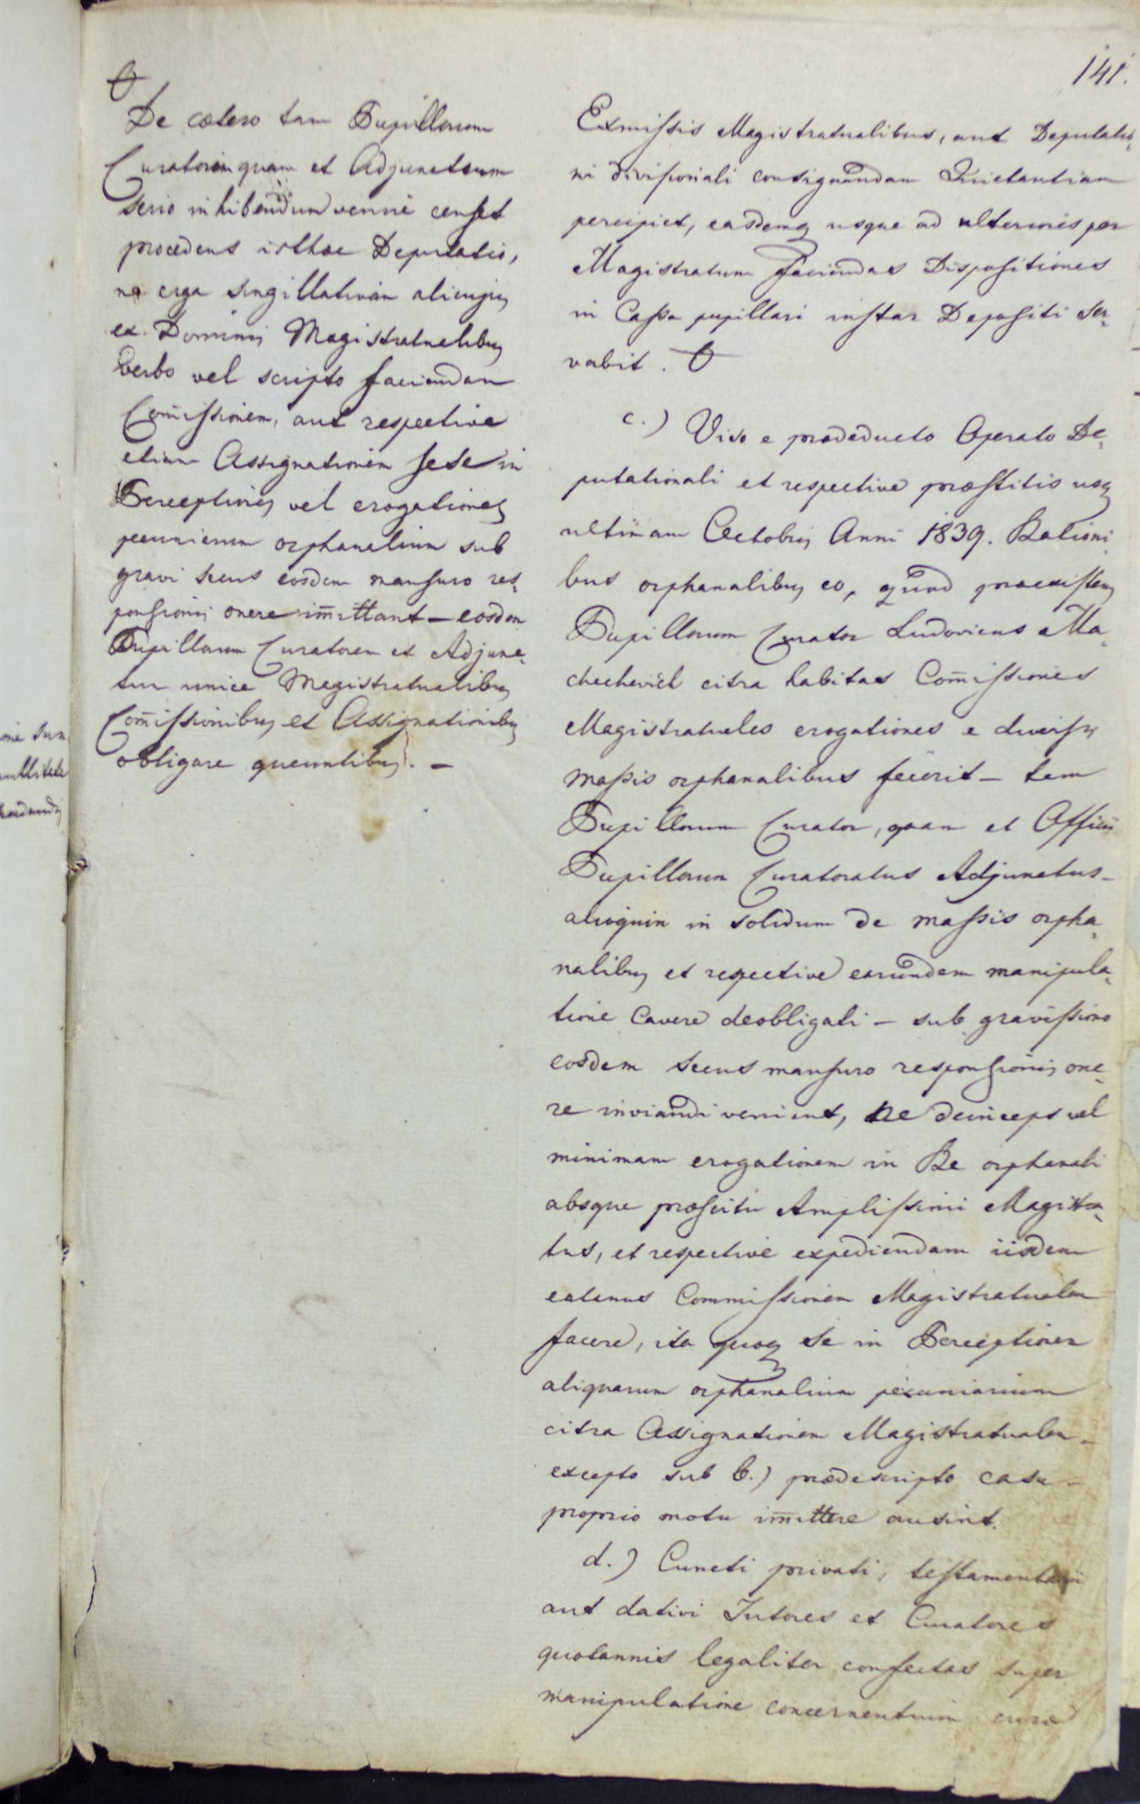 141.
De cætero tam Pupillorum
Curatorem quam et Adjunctum
serio inhibendum venire censet
procedens isthæc Deputatio,
ne erga singillativam alicujus
ex Dominis Magistratualibus
verbo vel scripto faciendam
Com̄issionem, aut respective
etiam Assignationem sese in
Perceptiones vel erogationes
pecuniarum orphanalium sub
gravi secus eosdem mansuro res-
ponsionis onere im̄ittant – eosdem
Pupillorum Curatorem et Adjunc-
tum unice Magistratualibus
Com̄issionibus et Assignationibus
obligare queuntibus. –
Exmissis Magistratualibus, aut Deputatio-
ni divisionali consignandam Quietantiam
percipiet, easdemq usque ad ulteriores per
Magistratum faciendas Dispositiones
in Cassa pupillari instar Depositi ser-
vabit.
c.) Viso e prodeducto Operato De-
putationali et respective præstitis usq
ultimam Octobris Anni 1839. Rationi-
bus orphanalibus eo, quod præexistens
Pupillorum Curator Ludovicus Ma-
chechevich citra habitas Com̄issiones
Magistratuales erogationes e diversis
massis orphanalibus fecerit – tam
Pupillorum Curator, quam et Officii
Pupillorum Curatoratus Adjunctus –
alioquin in solidum de massis orpha-
nalibus et respective earundem manipula-
tione cavere deobligati – sub gravissimo
eosdem secus mansuro responsionis one-
re inviandi venient, ne deinceps vel
minimam erogationem in Re orphanali
absque præscitu Amplissimi Magistra-
tus, et respective expediendam iisdem
eatenus Commissionem Magistratualem
facere, ita quoq se in Perceptionem
aliquarum orphanalium pecuniarium
citra Assignationem Magistratualem –
excepto sub b.) prædescripto casu –
proprio motu im̄ittere ausint.
d.) Cuncti privati, testamentarii
aut dativi Tutores et Curatores
quotannis legaliter confectas super
manipulatione concernentium curæ